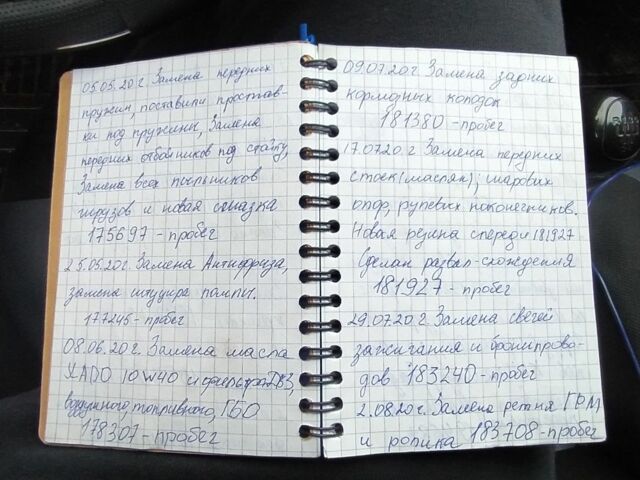 05.05.20г. Замена передних
пружин, поставили простав-
ки под пружины, Замена
передних отбойников под стойку,
Замена всех пыльников
шрузов и новая смазка
175697 - пробег
25.05.20г. Замена Антифриза,
замена штуцера помпы.
177245 - пробег
08.06.20г. Замена масла
XADO 10W40 и фильтра ДВЗ,
воздушного, топливного, ГБО
178307 - пробег
09.07.20г Замена задних
тормозных колодок
181380 - пробег
17.07.20г. Замена передних
стоек (маслян), шаровых
опор, рулевых наконечников.
Новая резина спереди 181927
Сделан развал-схождения
181927 - пробег
29.07.20г. Замена свечей
зажигания и бронепрово-
дов 183240 - пробег
2.08.20г. Замена ремня ГРМ
и ролика 183708 - пробег